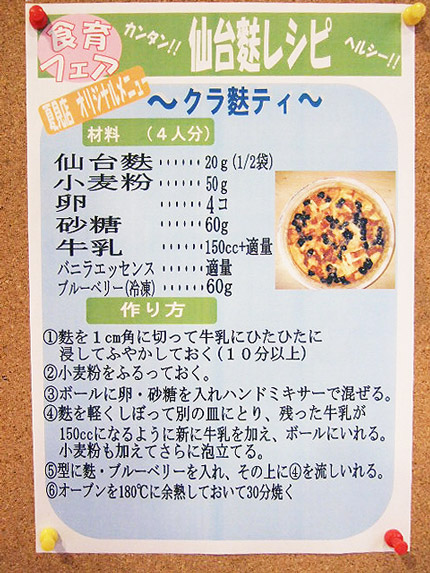 食育
フェア
カンタン!! 仙台麩レシピ ヘルシー!!
夏見店 オリジナルメニュー
～クラ麩ティ～
材料 （4人分）
仙台麩‥‥‥20g(1/2袋)
小麦粉‥‥‥50g
卵‥‥‥4コ
砂糖‥‥‥60g
牛乳‥‥‥150cc+適量
バニラエッセンス‥‥‥適量
ブルーベリー(冷凍)‥‥‥60g
作り方
①麩を１cm角に切って牛乳にひたひたに
浸してふやかしておく（１０分以上）
②小麦粉をふるっておく。
③ボールに卵・砂糖を入れハンドミキサーで混ぜる。
④麩を軽くしぼって別の皿にとり、残った牛乳が
150ccになるように新に牛乳を加え、ボールにいれる。
小麦粉も加えてさらに泡立てる。
⑤型に麩・ブルーベリーを入れ、その上に④を流しいれる。
⑥オーブンを180℃に余熱しておいて30分焼く